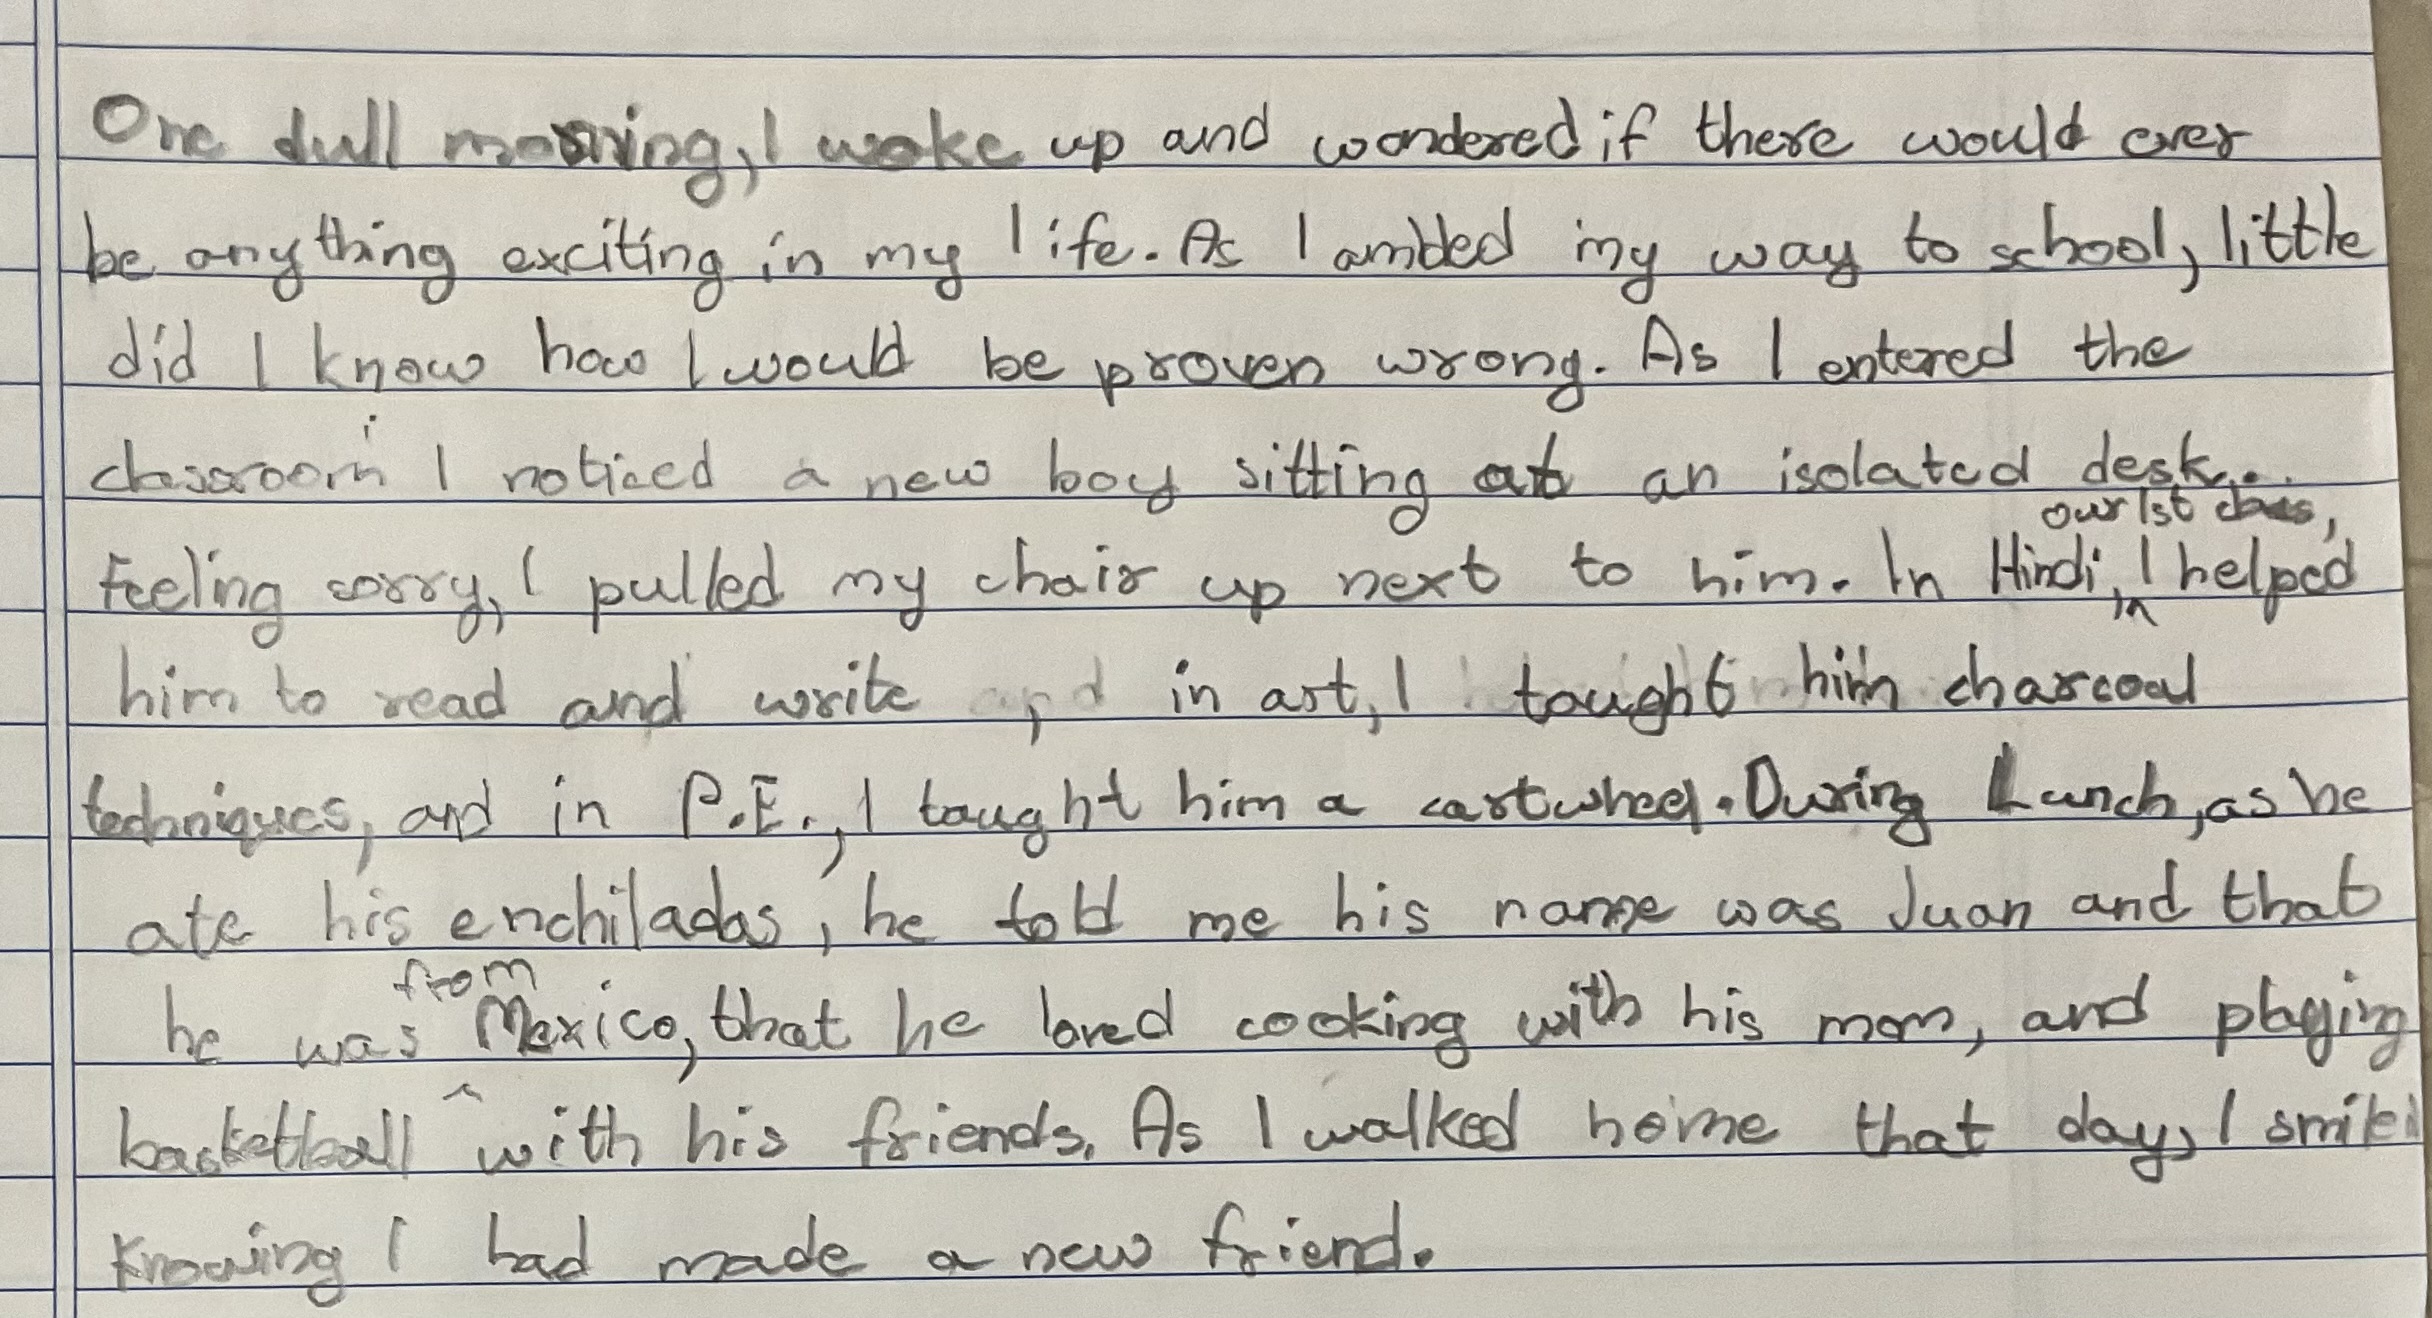 One dull morning, I woke up and wondered if there would ever
be anything exciting in my life. As I ambled my way to school, little
did I know how I would be proven wrong. As I entered the
classroom I noticed a new boy sitting at an isolated desk...
our 1st class,
Feeling sorry, I pulled my chair up next to him. In Hindi, I helped
him to read and write in art, I taught him charcoal
techniques, and in P.E., I taught him a cartwheel. During Lunch, as he
ate his enchiladas, he told me his name was Juan and that
from
he was Mexico, that he loved cooking with his mom, and playing
basketball with his friends. As I walked home that day, I smiled
Knowing I had made a new friend.